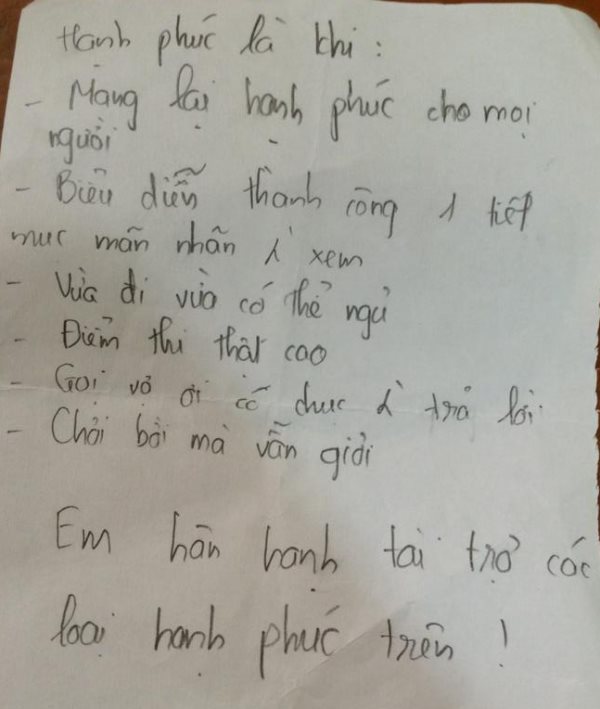 Hạnh phúc là khi :
- Mang lại hạnh phúc cho mọi
người
- Biểu diễn thành công 1 tiết
mục mãn nhãn xem
- Vừa đi vừa có thể ngủ
- Điểm thi thật cao
- Gọi vợ ơi có chục trả lời
- Chơi bời mà vẫn giỏi
Em hân hạnh tài trợ các
loại hạnh phúc trên !